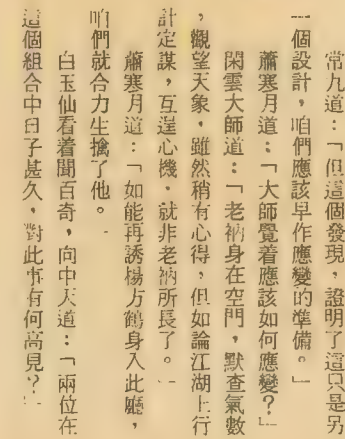 常九道：「但這個發現，證明了這只是另
一個設計，咱們應該早作應變的準備。」
蕭寒月道：「大師覺着應該如何應變？」
閑雲大師道：「老衲身在空門，默查氣數
，觀望天象，雖然稍有心得，但如論江湖上行
計定謀，互逞心機，就非老衲所長了。」
蕭寒月道：「如能再誘楊方鶴身入此廳，
咱們就合力生擒了他。
白玉仙看着聞百奇，向中天道：「兩位在
這個組合中日子甚久，對此事有何高見？」